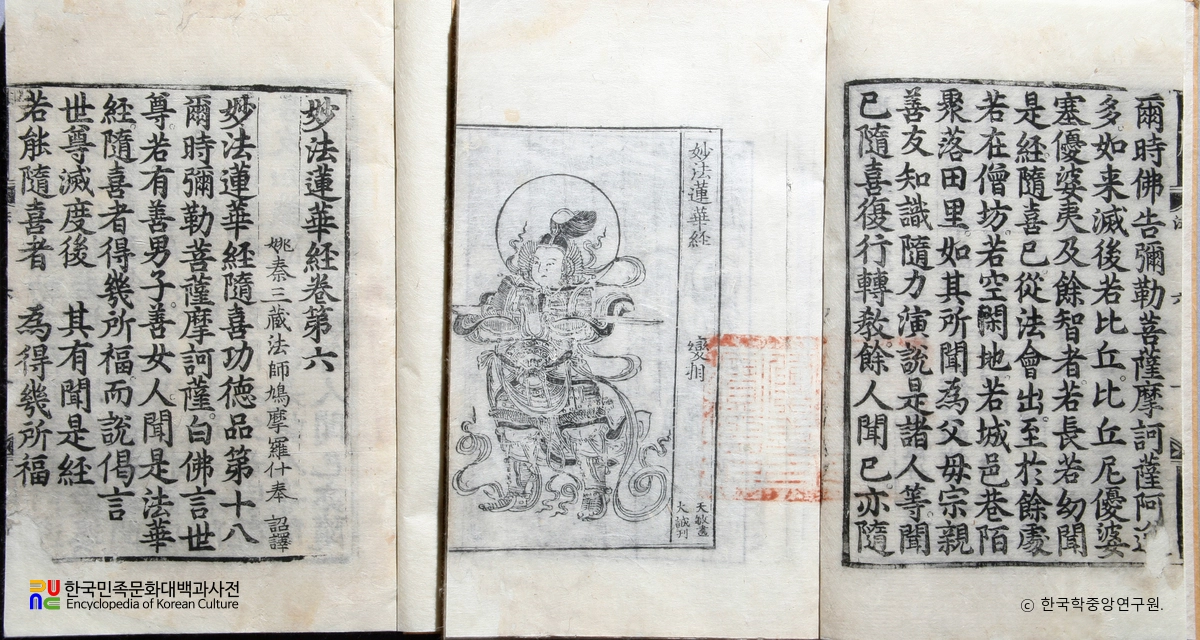 妙法蓮華經卷第六
姚秦三藏法師鳩摩羅什奉 詔譯
妙法蓮華經隨喜功德品第十八
爾時彌勒菩薩摩訶薩白佛言世
尊若有善男子善女人聞是法華
經隨喜者得幾所福而說偈言
世尊滅度後 其有聞是經
若能隨喜者 為得幾所福
妙法蓮華経 變相
天敏畫
大誠刊
爾時佛告彌勒菩薩摩訶薩阿
多如来滅後若比丘比丘尼優婆
塞優婆夷及餘智者若長若幼聞
是經隨喜已從法會出至於餘處
若在僧坊若空閑地若城邑巷陌
聚落田里如其所聞為父母宗親
善友知識隨力演說是諸人等聞
已隨喜復行轉教餘人聞已亦隨
한국민족문화대백과사전
Encyclopedia of Korean Culture
ⓒ 한국학중앙연구원.